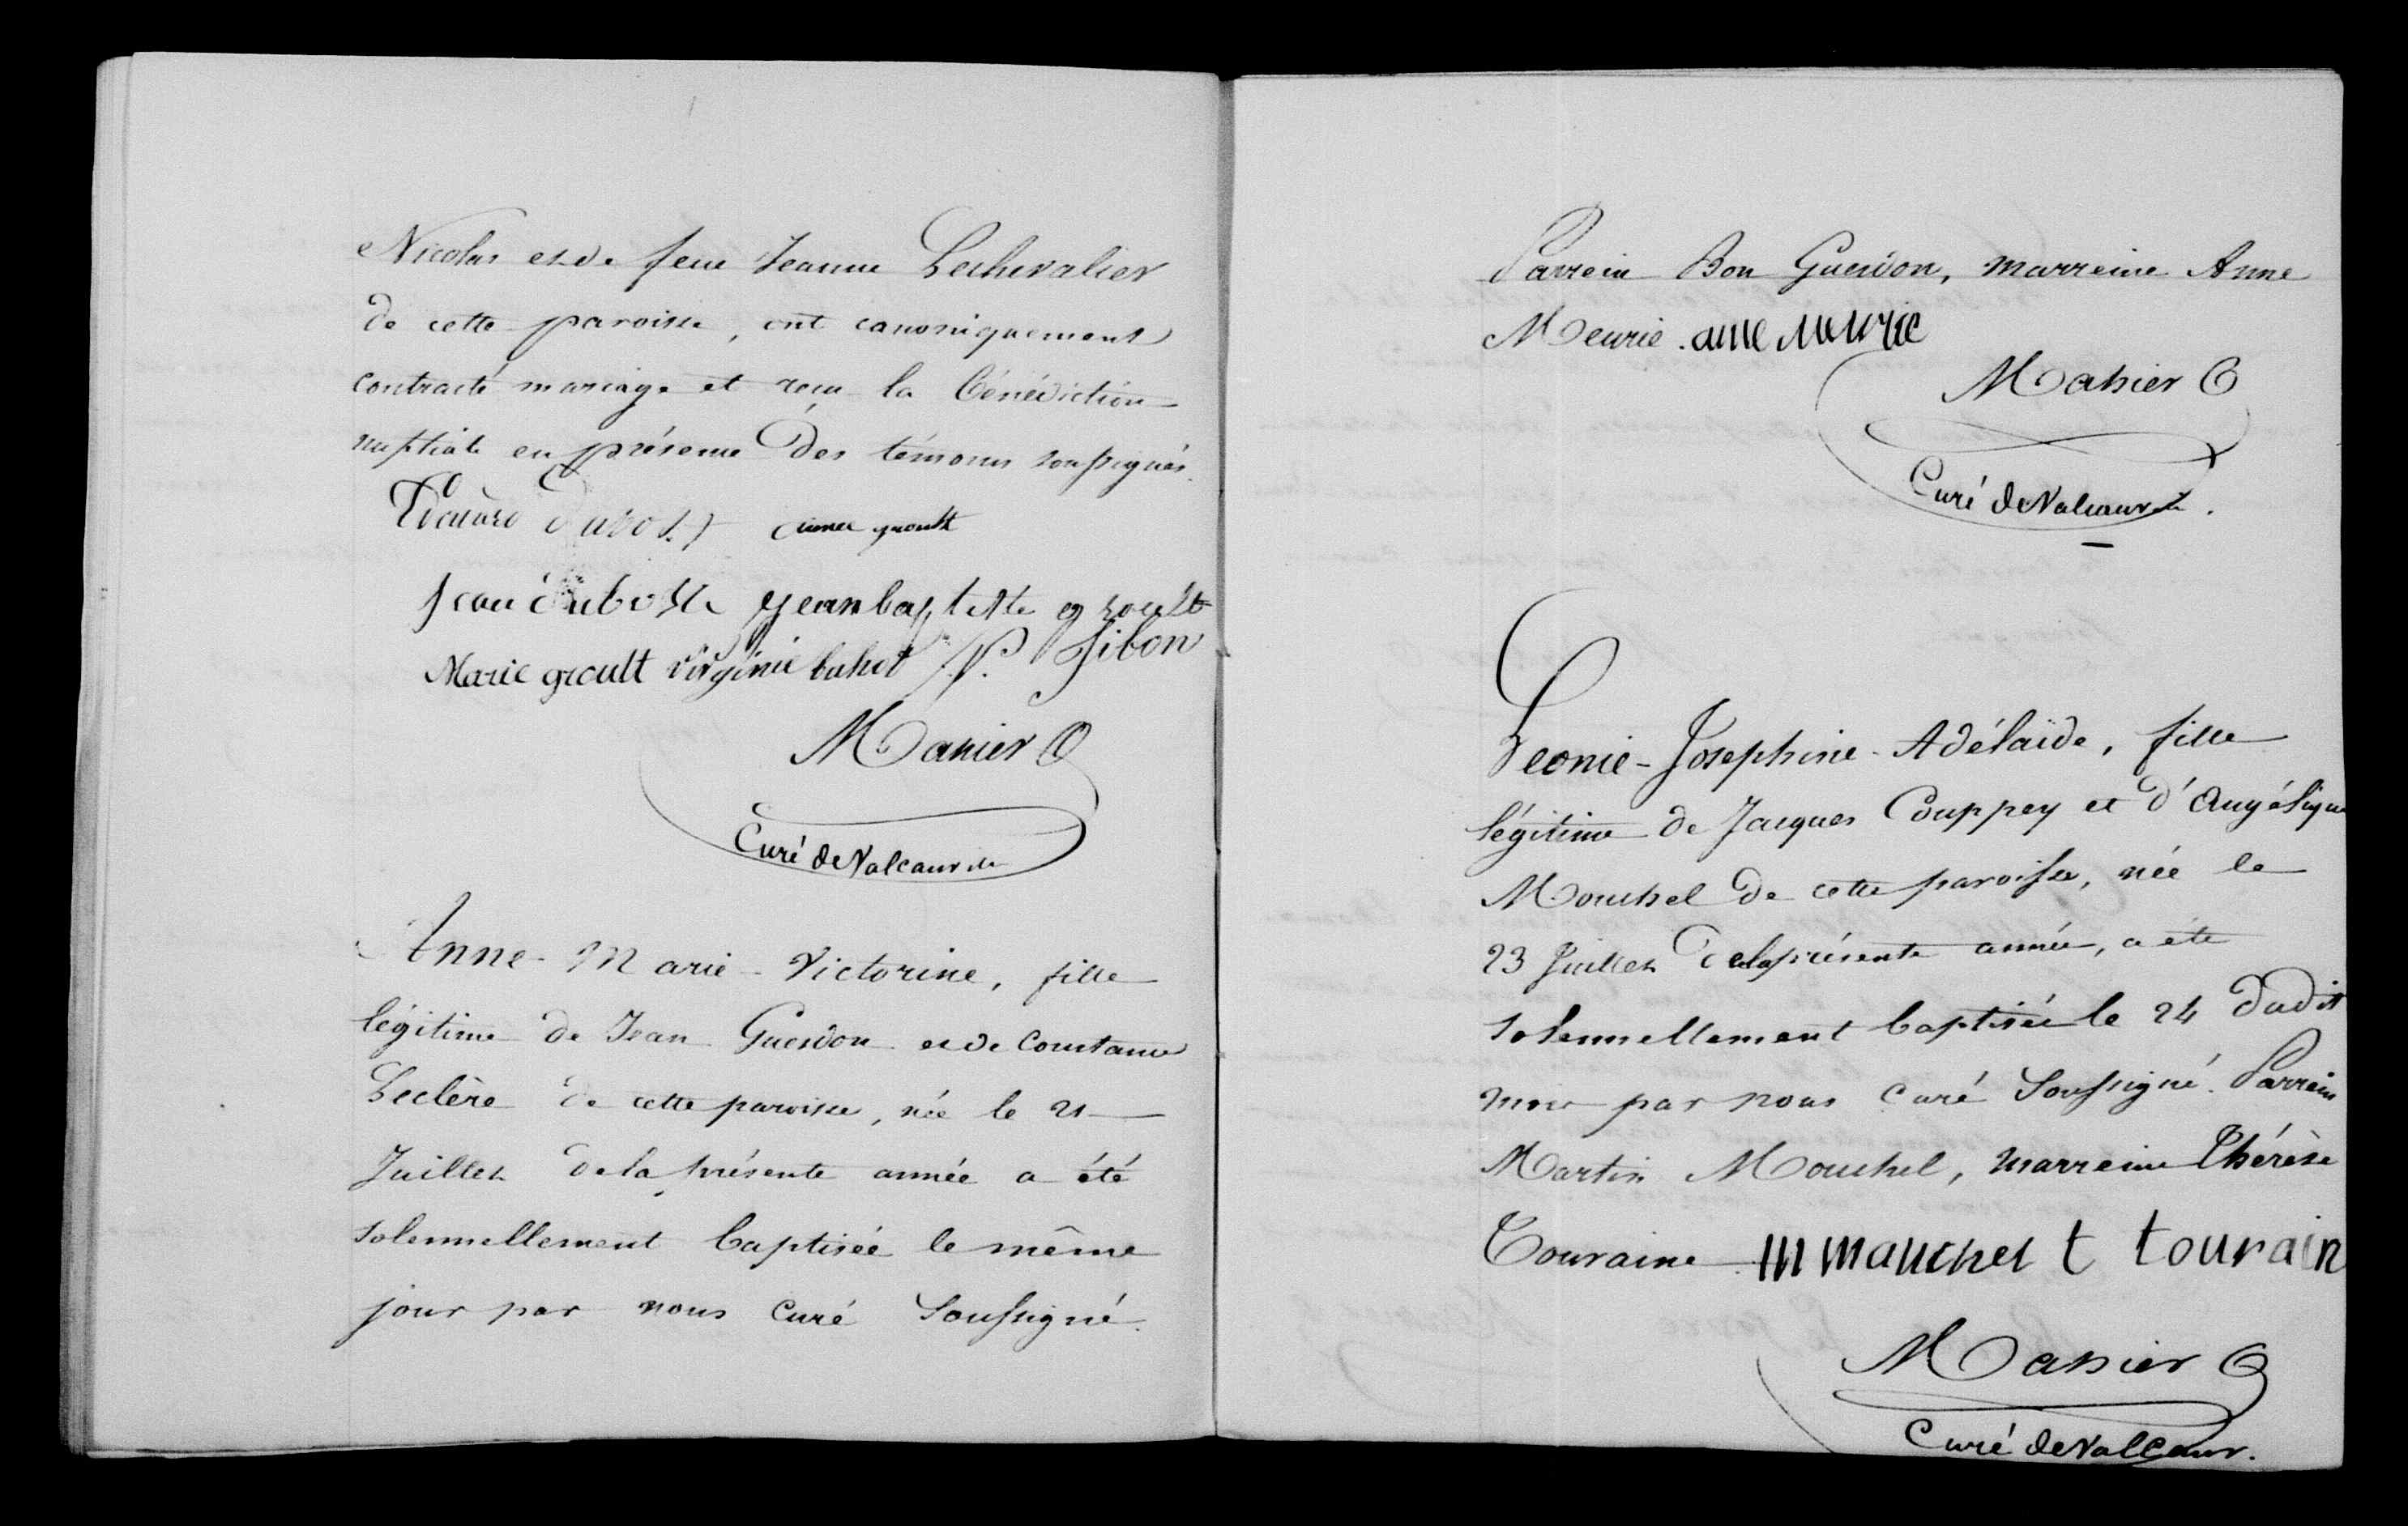 Nicolas et de feue Jeanne Lechevalier
de cette paroisse, ont canoniquement
contracté mariage et reçu la bénédiction
nuptiale en présence des témoins soussignés.
Edouard aimee groult
Jean dubost jean baptiste groult
Marie groult virginie buhot P. Sibon
Mahier C
Curé de Valcanville
Anne-Marie-Victorine, fille
légitime de Jean Guesdon et de Constance
Leclère de cette paroisse, née le 21
Juillet de la présente année a été
solennellement baptisée le même
jour par nous Curé Soussigné.
Parrein Bon Guesdon, marreine Anne
Meurie. anne Meurie
Mahier C
Curé de Valcanville.
Leonie-Josephine-Adélaïde, fille
légitime de Jacques Couppey et d'Angélique
Mouchel de cette paroisse, née le
23 Juillet de la présente année, a été
solennellement baptisée le 24 dudit
mois par nous Curé Soussigné. Parrein
Martin Mouchel, marreine Thérèse
Touraine m mauchel t tourain
Mahier C
Curé de Valcanv.